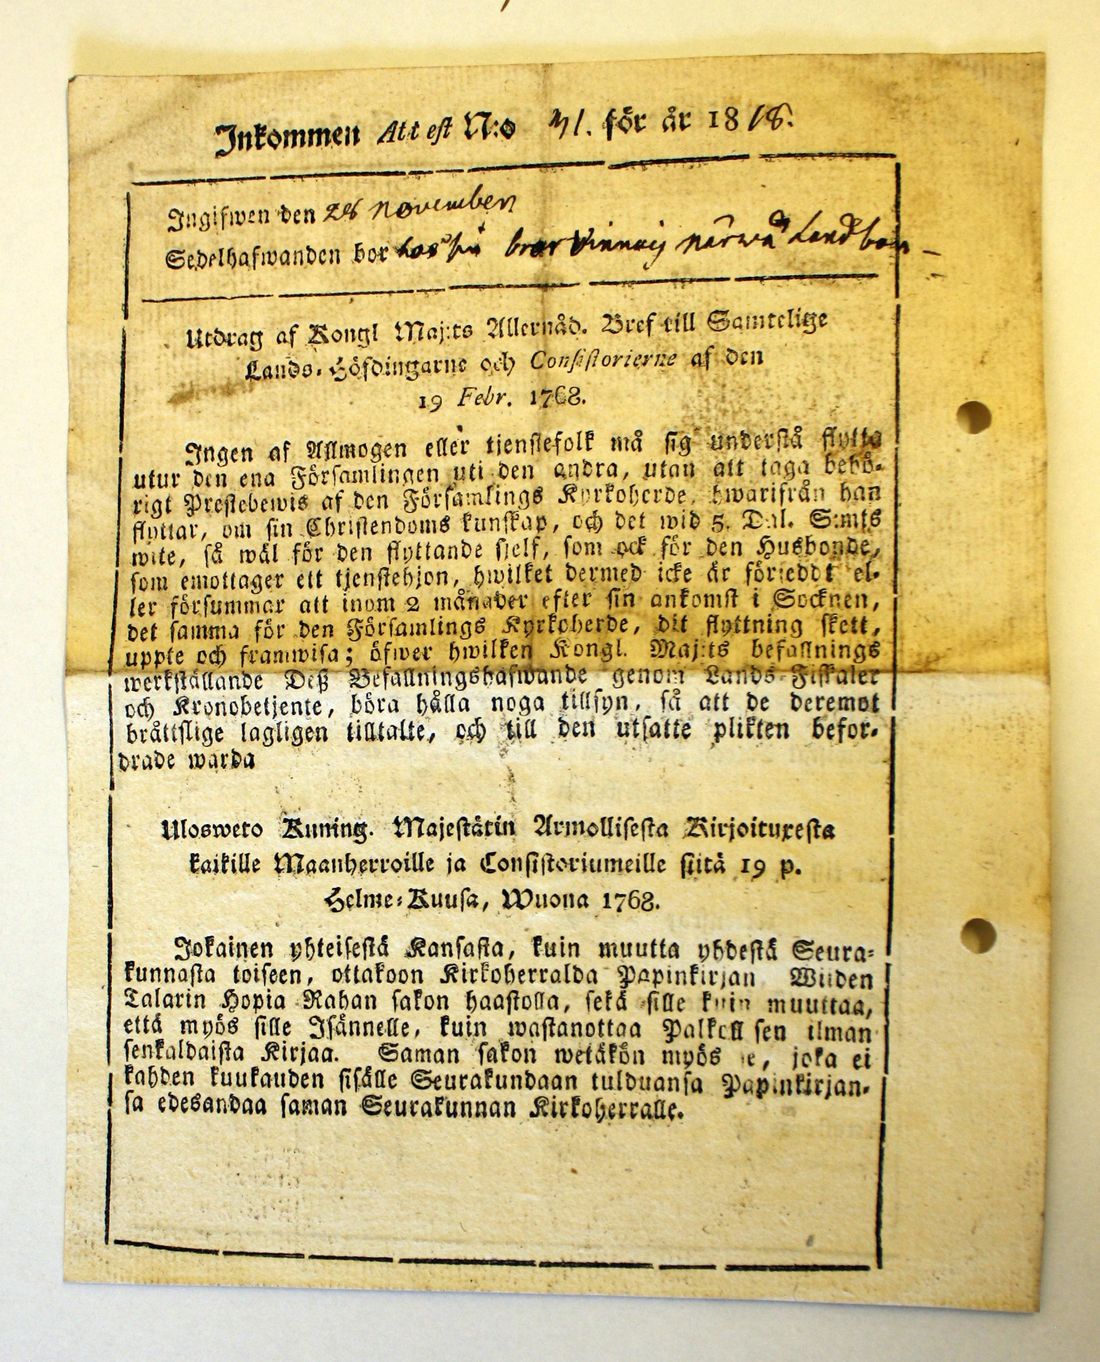 Inkommen Attest N:o 71. för år 1818.
Ingifwen den 28 november
Sedelhafwanden bor hos
Utdrag af Kongl Maj:ts Allernåd. Bref till Samtelige
Lands-Höfdingarne och Consistorierne af den
19 Febr. 1768.
Ingen af Allmogen eller tjenstefolk må sig understå flytta
utur den ena Församlingen uti den andra, utan att taga behö-
rigt Prestebewis af den Församlings Kyrkoherde, hwarifrån han
flyttar, om sin Christendoms kunskap, och det wid 5. Dal. S:mts
wite, så wäl för den flyttande sjelf, som ock för den Husbonde,
som emottager ett tjenstehjon, hwilket dermed icke är försedt el-
ler försummar att inom 2 månader efter sin ankomst i Socknen,
det samma för den Församlings Kyrkoherde, dit flyttning skett,
uppte och framwisa; öfwer hwilken Kongl. Maj:ts befallnings
werkställande Deß Befallningshafwande genom Lands-Fiskaler
och Kronobetjente, böra hålla noga tillsyn, så att de deremot
bråttslige lagligen tilltalte, och till den utsatte plikten befor-
drade warda
Ulosweto Kuning. Majestätin Armollisesta Kirjoituxesta
kaikille Maanherroille ja Consistoriumeille siitä 19 p.
Helme-Kuusa, Wuona 1768.
Jokainen yhteisestä Kansasta, kuin muutta yhdestä Seura-
kunnasta toiseen, ottakoon Kirkoherralda Papinkirjan Wiiden
Talarin Hopia Rahan sakon haastolla, sekä sille kuin muuttaa,
että myös sille Isännelle, kuin wastanottaa Palkoll sen ilman
senkaldaista Kirjaa. Saman sakon wetäkön myös se, joka ei
kahden kuukauden sisälle Seurakundaan tulduansa Papinkirjan-
sa edesandaa saman Seurakunnan Kirkoherralle.